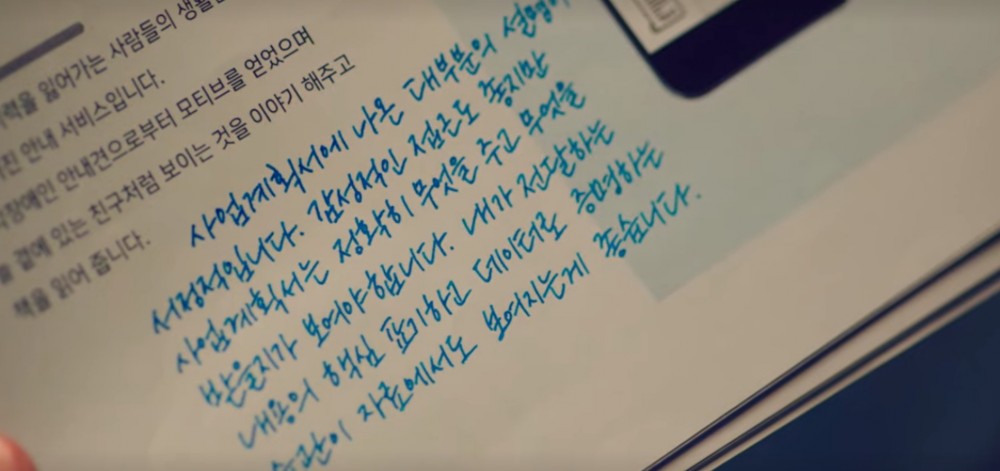 력을 잃어가는 사람들의 생활
안내 서비스입니다.
안내견으로부터 모티브를 얻었으며
곁에 있는 친구처럼 보이는 것을 이야기 해주고
책을 읽어 줍니다.
사업계획서에 나온 대부분의 설명이
서정적입니다. 감성적인 접근도 좋지만
사업계획서는 정확히 무엇을 주고 무엇을
받을지가 보여야합니다. 내가 전달하는
내용의 핵심 표기하고 데이터로 증명하는
습관이 자료에서도 보여지는게 좋습니다.